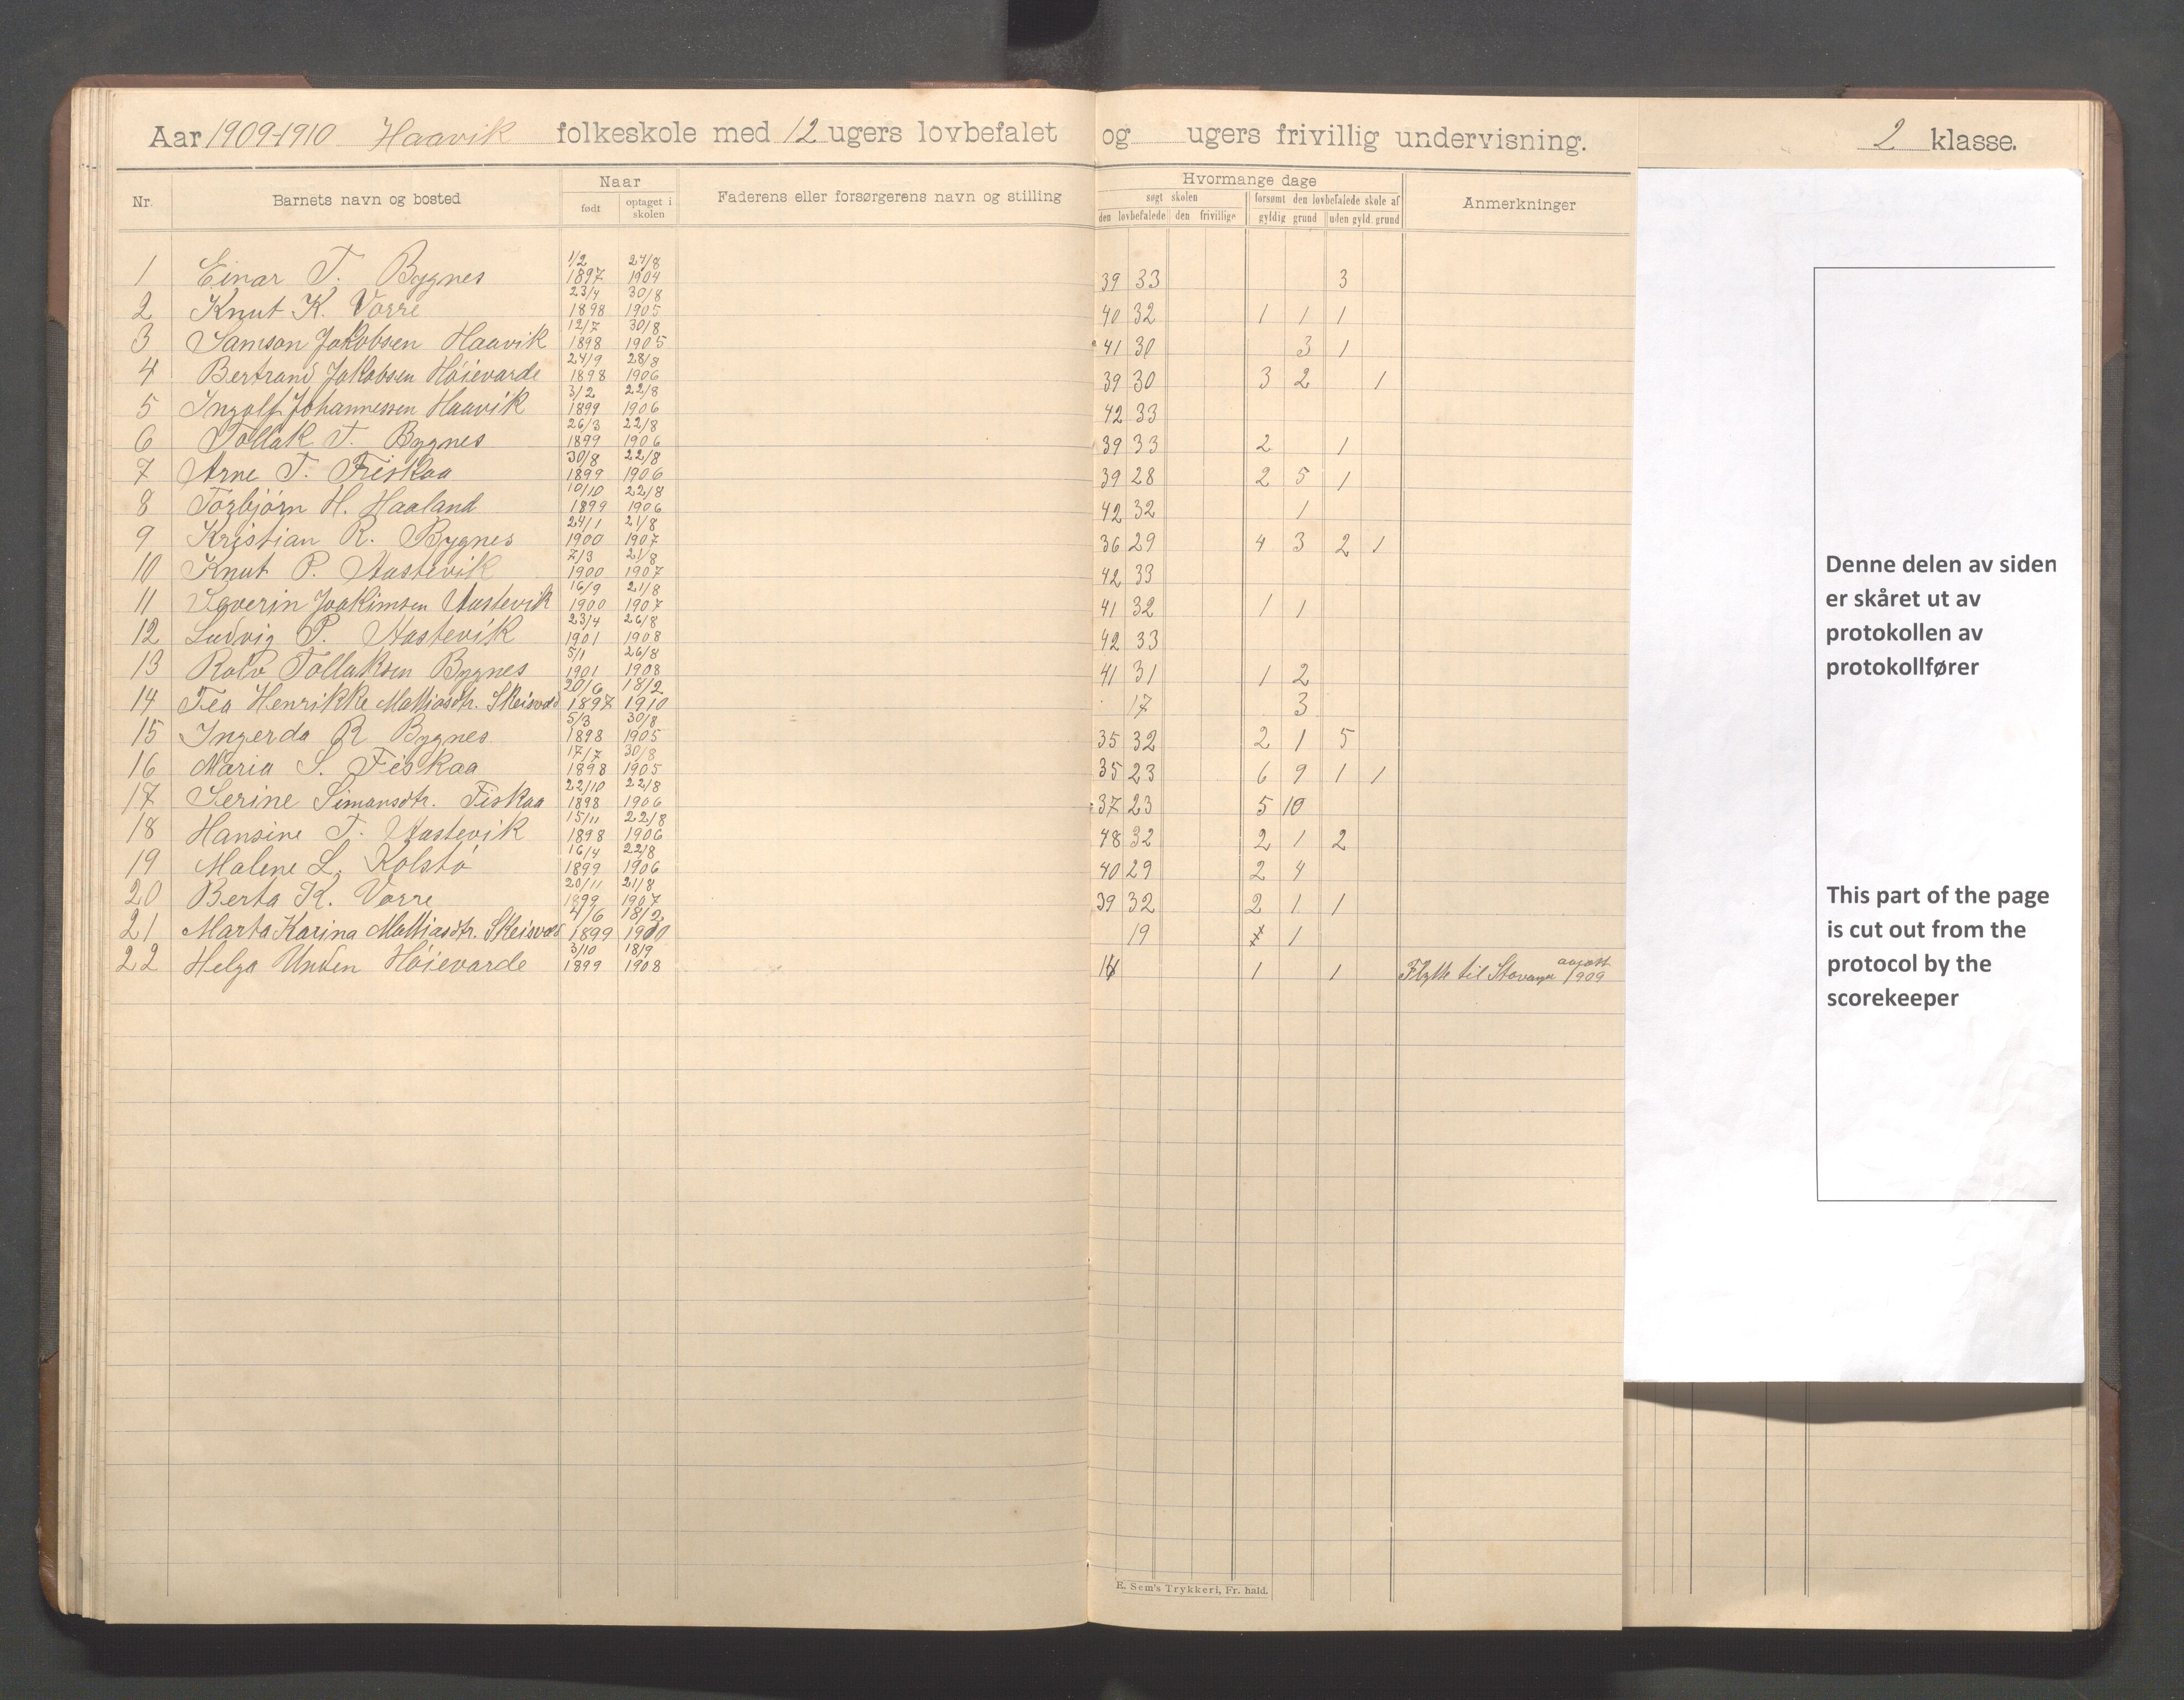 Aar 1909-1910 Haavik folkeskole med 12 ugers lovbefalet og ugers frivillig undervisning. 2 klasse.
Nr. Barnets navn og bosted Naar født optaget i skolen Faderens eller forsørgerens navn og stilling Hvormange dage søgt skolen den lovbefalede den frivillige forsømt den lovbefalede skole af gyldig grund uden gyld. grund Anmerkninger
1 Einar T. Bygnes 1/2 1897 24/8 1904 39 33 3
2 Knut K. Vorre 23/4 1898 30/8 1905 40 32 1 1 1
3 Samson Jakobsen Haavik 12/7 1898 30/8 1905 41 30 3 1
4 Bertrand Jakobsen Høievarde 24/9 1898 28/8 1906 39 30 3 2 1
5 Ingolf Johannessen Haavik 3/2 1899 22/8 1906 42 33
6 Tollak T. Bygnes 26/3 1899 22/8 1906 39 33 2 1
7 Arne T. Fiskaa 30/8 1899 22/8 1906 39 28 2 5 1
8 Torbjørn H. Haaland 10/10 1899 22/8 1906 42 32 1
9 Kristian R. Bygnes 24/1 1900 21/8 1907 36 29 4 3 2 1
10 Knut P. Aastevik 7/3 1900 21/8 1907 42 33
11 Severin Joakimsen Aastevik 16/9 1900 21/8 1907 41 32 1 1
12 Ludvig P. Aastevik 23/4 1901 26/8 1908 42 33
13 Rolv Tollaksen Bygnes 5/1 1901 26/8 1908 41 31 1 2
14 Tea Henrikke Mathiasdtr. Skeisvold 20/6 1897 18/2 1910 17 3
15 Ingerda R Bygnes 5/3 1898 30/8 1905 35 32 2 1 5
16 Maria S. Fiskaa 17/7 1898 30/8 1905 35 23 6 9 1 1
17 Serine Simonsdtr. Fiskaa 22/10 1898 22/8 1906 37 23 5 10
18 Hansine T. Aastevik 15/11 1898 22/8 1906 48 32 2 1 2
19 Malene L. Kolstø 16/4 1899 22/8 1906 40 29 2 4
20 Berta K. Vorre 20/11 1899 21/8 1907 39 32 2 1 1
21 Marta Karina Mathiasdtr. Skeisvold 4/6 1899 18/2 1910 19 1
22 Helga Unden Høievarde 3/10 1899 18/9 1908 14 1 1 Flytte til Stavanger august 1909
E. Sem's Trykkeri, Fr. hald.
Denne delen av siden
er skåret ut av
protokollen av
protokollfører
This part of the page
is cut out from the
protocol by the
scorekeeper